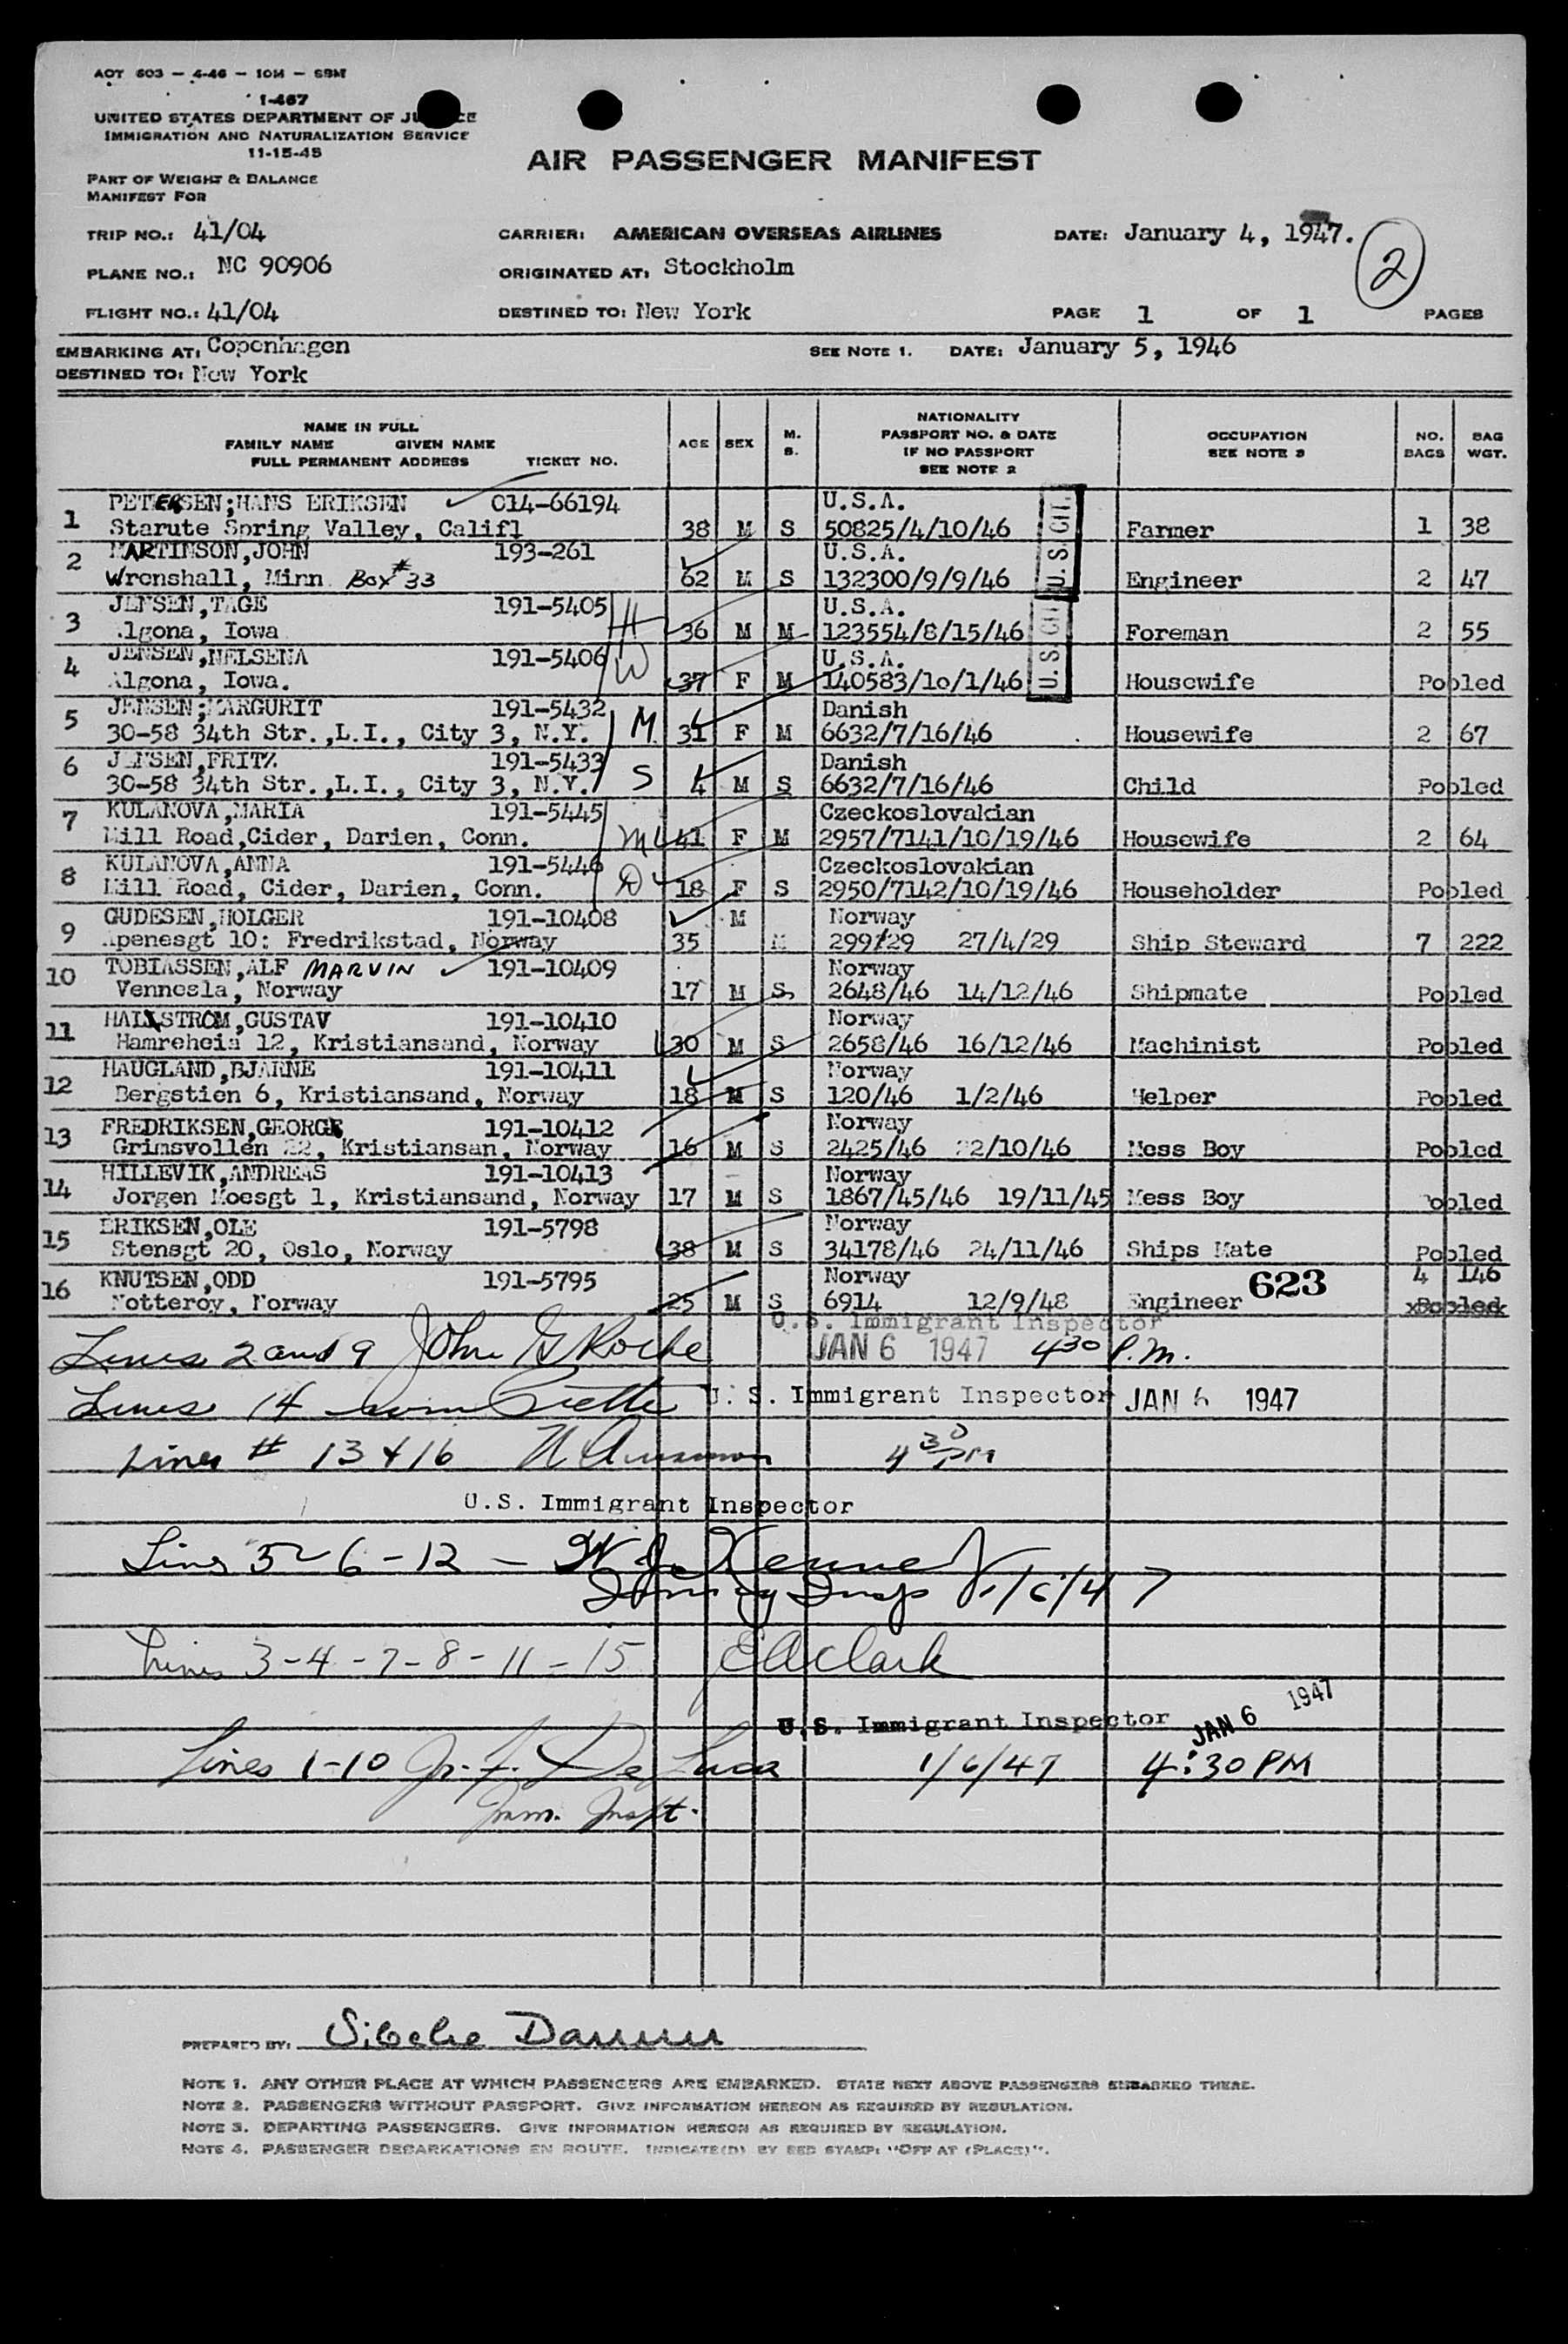 AOT 603 — 4-46 — 10M — SBM
1-467
UNITED STATES DEPARTMENT OF JUSTICE
IMMIGRATION AND NATURALIZATION SERVICE
11-15-45
AIR PASSENGER MANIFEST
PART OF WEIGHT & BALANCE
MANIFEST FOR
TRIP NO.: 41/04 CARRIER: AMERICAN OVERSEAS AIRLINES DATE: January 4, 1947.
2
PLANE NO.: NC 90906 ORIGINATED AT: Stockholm
FLIGHT NO.: 41/04 DESTINED TO: New York PAGE 1 OF 1 PAGES
EMBARKING AT: Copenhagen SEE NOTE 1. DATE: January 5, 1946
DESTINED TO: New York
NAME IN FULL
FAMILY NAME GIVEN NAME
FULL PERMANENT ADDRESS TICKET NO.
AGE SEX M. S.
NATIONALITY
PASSPORT NO. & DATE
IF NO PASSPORT
SEE NOTE 2
OCCUPATION
SEE NOTE 3
NO. BAGS
BAG WGT.
1 PETERSEN;HANS ERIKSEN 014-66194 U.S.A.
Starute Spring Valley, Califl 38 M S 50825/4/10/46 U.S. CIT. Farmer 1 38
2 MARTINSON,JOHN 193-261 U.S.A.
Wrenshall, Minn Box #33 62 M S 132300/9/9/46 Engineer 2 47
3 JENSEN,TAGE 191-5405 H U.S.A.
Algona, Iowa 36 M M 123554/8/15/46 U.S. CIT Foreman 2 55
4 JENSEN,NELSENA 191-5406 W U.S.A.
Algona, Iowa. 37 F M 140583/10/1/46 Housewife Pooled
5 JENSEN;MARGURIT 191-5432 M Danish
30-58 34th Str.,L.I., City 3, N.Y. 31 F M 6632/7/16/46 Housewife 2 67
6 JENSEN,FRITZ 191-5433 S Danish
30-58 34th Str.,L.I., City 3, N.Y. 4 M S 6632/7/16/46 Child Pooled
7 KULANOVA,MARIA 191-5445 M Czeckoslovakian
Mill Road,Cider, Darien, Conn. 41 F M 2957/7141/10/19/46 Housewife 2 64
8 KULANOVA,ANNA 191-5446 D Czeckoslovakian
Mill Road, Cider, Darien, Conn. 18 F S 2950/7142/10/19/46 Householder Pooled
9 GUDESEN,HOLGER 191-10408 M Norway
Apenesgt 10: Fredrikstad, Norway 35 M 299/29 27/4/29 Ship Steward 7 222
10 TOBIASSEN,ALF MARVIN 191-10409 Norway
Vennesla, Norway 17 M S 2648/46 14/12/46 Shipmate Pooled
11 HALLSTROM,GUSTAV 191-10410 Norway
Hamreheia 12, Kristiansand, Norway 30 M S 2658/46 16/12/46 Machinist Pooled
12 HAUGLAND,BJARNE 191-10411 Norway
Bergstien 6, Kristiansand, Norway 18 M S 120/46 1/2/46 Helper Pooled
13 FREDRIKSEN,GEORGE 191-10412 Norway
Grimsvollen 22, Kristiansan, Norway 16 M S 2425/46 22/10/46 Mess Boy Pooled
14 HILLEVIK,ANDREAS 191-10413 Norway
Jorgen Moesgt 1, Kristiansand, Norway 17 M S 1867/45/46 19/11/45 Mess Boy Pooled
15 ERIKSEN,OLE 191-5798 Norway
Stensgt 20, Oslo, Norway 38 M S 34178/46 24/11/46 Ships Mate Pooled
16 KNUTSEN,ODD 191-5795 Norway 623 4 146
Notteroy, Norway 25 M S 6914 12/9/48 Engineer Pooled
U.S. Immigrant Inspector
Lines 2 and 9 John G Roche JAN 6 1947 4 30 P.M.
Lines 14 U.S. Immigrant Inspector JAN 6 1947
Lines # 13 & 16 4 30 PM
U.S. Immigrant Inspector
Lines 5-6-12 - W J Kennedy
Immig Insp 1/6/47
Lines 3-4-7-8-11-15 E A Clark
U.S. Immigrant Inspector JAN 6 1947
Lines 1-10 De Luca 1/6/47 4:30 PM
Imm. Inspt.
PREPARED BY:
NOTE 1. ANY OTHER PLACE AT WHICH PASSENGERS ARE EMBARKED. STATE NEXT ABOVE PASSENGERS EMBARKED THERE.
NOTE 2. PASSENGERS WITHOUT PASSPORT. GIVE INFORMATION HEREON AS REQUIRED BY REGULATION.
NOTE 3. DEPARTING PASSENGERS. GIVE INFORMATION HEREON AS REQUIRED BY REGULATION.
NOTE 4. PASSENGER DEBARKATIONS EN ROUTE. INDICATE(D) BY RED STAMP: "OFF AT (PLACE)".